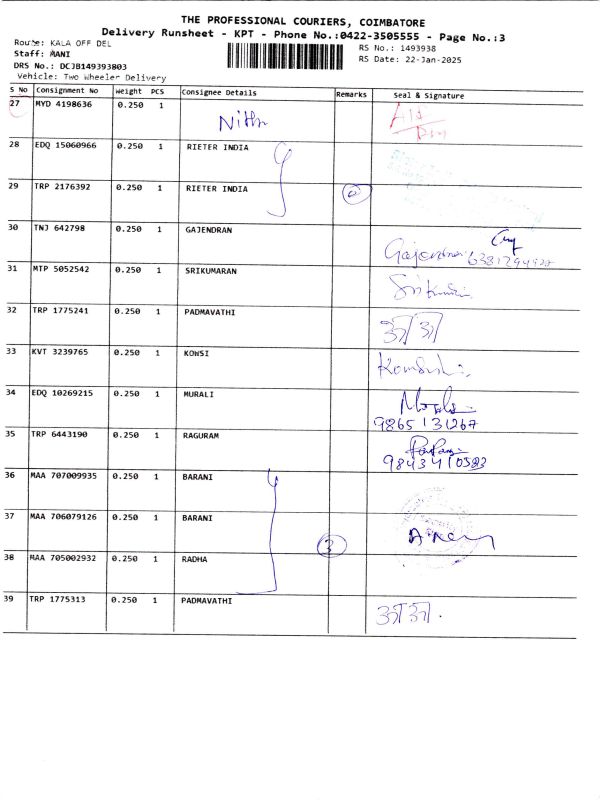 THE PROFESSIONAL COURIERS, COIMBATORE
Delivery Runsheet - KPT - Phone No.:0422-3505555 - Page No.:3
Route: KALA OFF DEL
RS No.: 1493938
Staff: MANI
RS Date: 22-Jan-2025
DRS No.: DCJB149393803
Vehicle: Two Wheeler Delivery
S No Consignment No Weight PCS Consignee Details Remarks Seal & Signature
27 MYD 4198636 0.250 1
28 EDQ 15060966 0.250 1 RIETER INDIA
29 TRP 2176392 0.250 1 RIETER INDIA
30 TNJ 642798 0.250 1 GAJENDRAN
Gajendran
31 MTP 5052542 0.250 1 SRIKUMARAN
32 TRP 1775241 0.250 1 PADMAVATHI
33 KVT 3239765 0.250 1 KOWSI
34 EDQ 10269215 0.250 1 MURALI
9865131267
35 TRP 6443190 0.250 1 RAGURAM
36 MAA 707009935 0.250 1 BARANI
37 MAA 706079126 0.250 1 BARANI
3
38 MAA 705002932 0.250 1 RADHA
39 TRP 1775313 0.250 1 PADMAVATHI